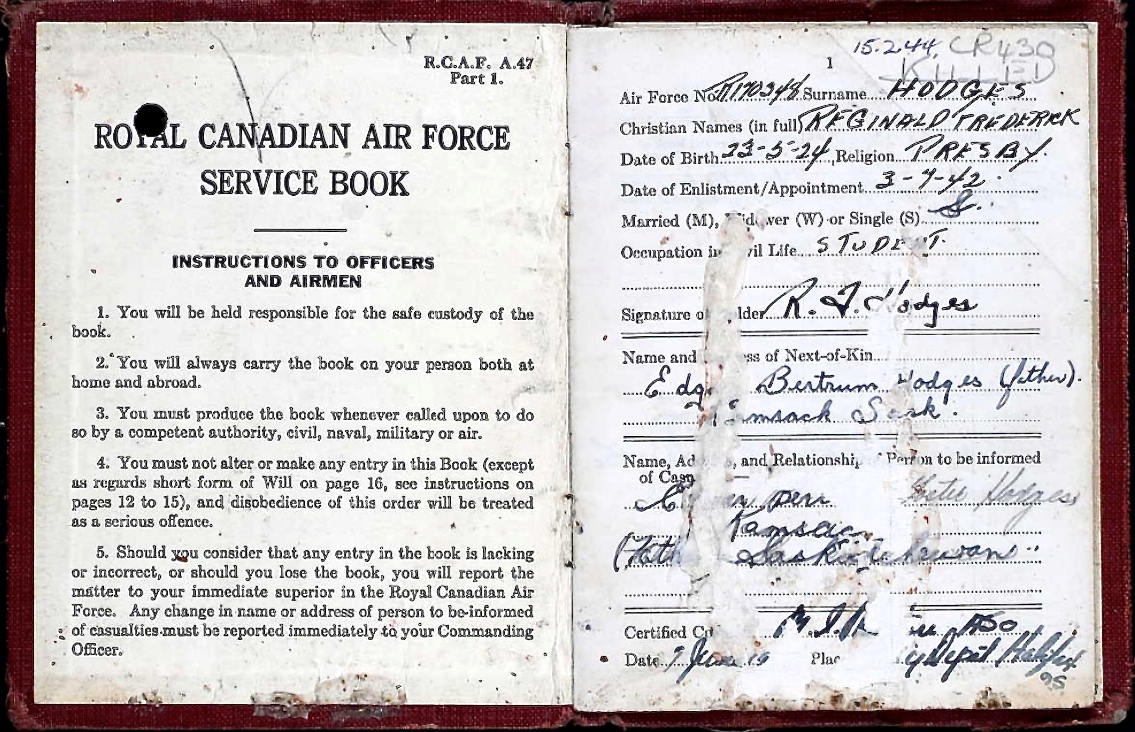 R.C.A.F. A.47
Part 1.
ROYAL CANADIAN AIR FORCE
SERVICE BOOK
INSTRUCTIONS TO OFFICERS
AND AIRMEN
1. You will be held responsible for the safe custody of the
book.
2. You will always carry the book on your person both at
home and abroad.
3. You must produce the book whenever called upon to do
so by a competent authority, civil, naval, military or air.
4. You must not alter or make any entry in this Book (except
as regards short form of Will on page 16, see instructions on
pages 12 to 15), and disobedience of this order will be treated
as a serious offence.
5. Should you consider that any entry in the book is lacking
or incorrect, or should you lose the book, you will report the
matter to your immediate superior in the Royal Canadian Air
Force. Any change in name or address of person to be informed
of casualties must be reported immediately to your Commanding
Officer.
15.2.44. CR430
1 KILLED
Air Force No. R170348 Surname HODGES
Christian Names (in full) REGINALD FREDERICK
Date of Birth 23-5-24 Religion PRESBY.
Date of Enlistment/Appointment 3-7-42.
Married (M), Widower (W) or Single (S) S.
Occupation in Civil Life STUDENT.
Signature of Holder R. F. Hodges
Name and Address of Next-of-Kin
Edgar Bertrum Hodges (father).
Kamsack Sask.
Name, Address, and Relationship of Person to be informed
of Casualties—
Hodges
Kamsack
Saskatchewan
Certified
Date 7 June Place Depot Halifax